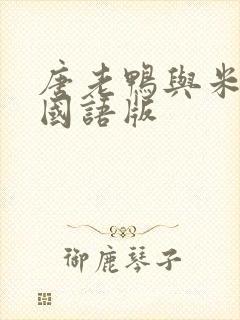 唐老鴨與米
國語版
御鹿琴子